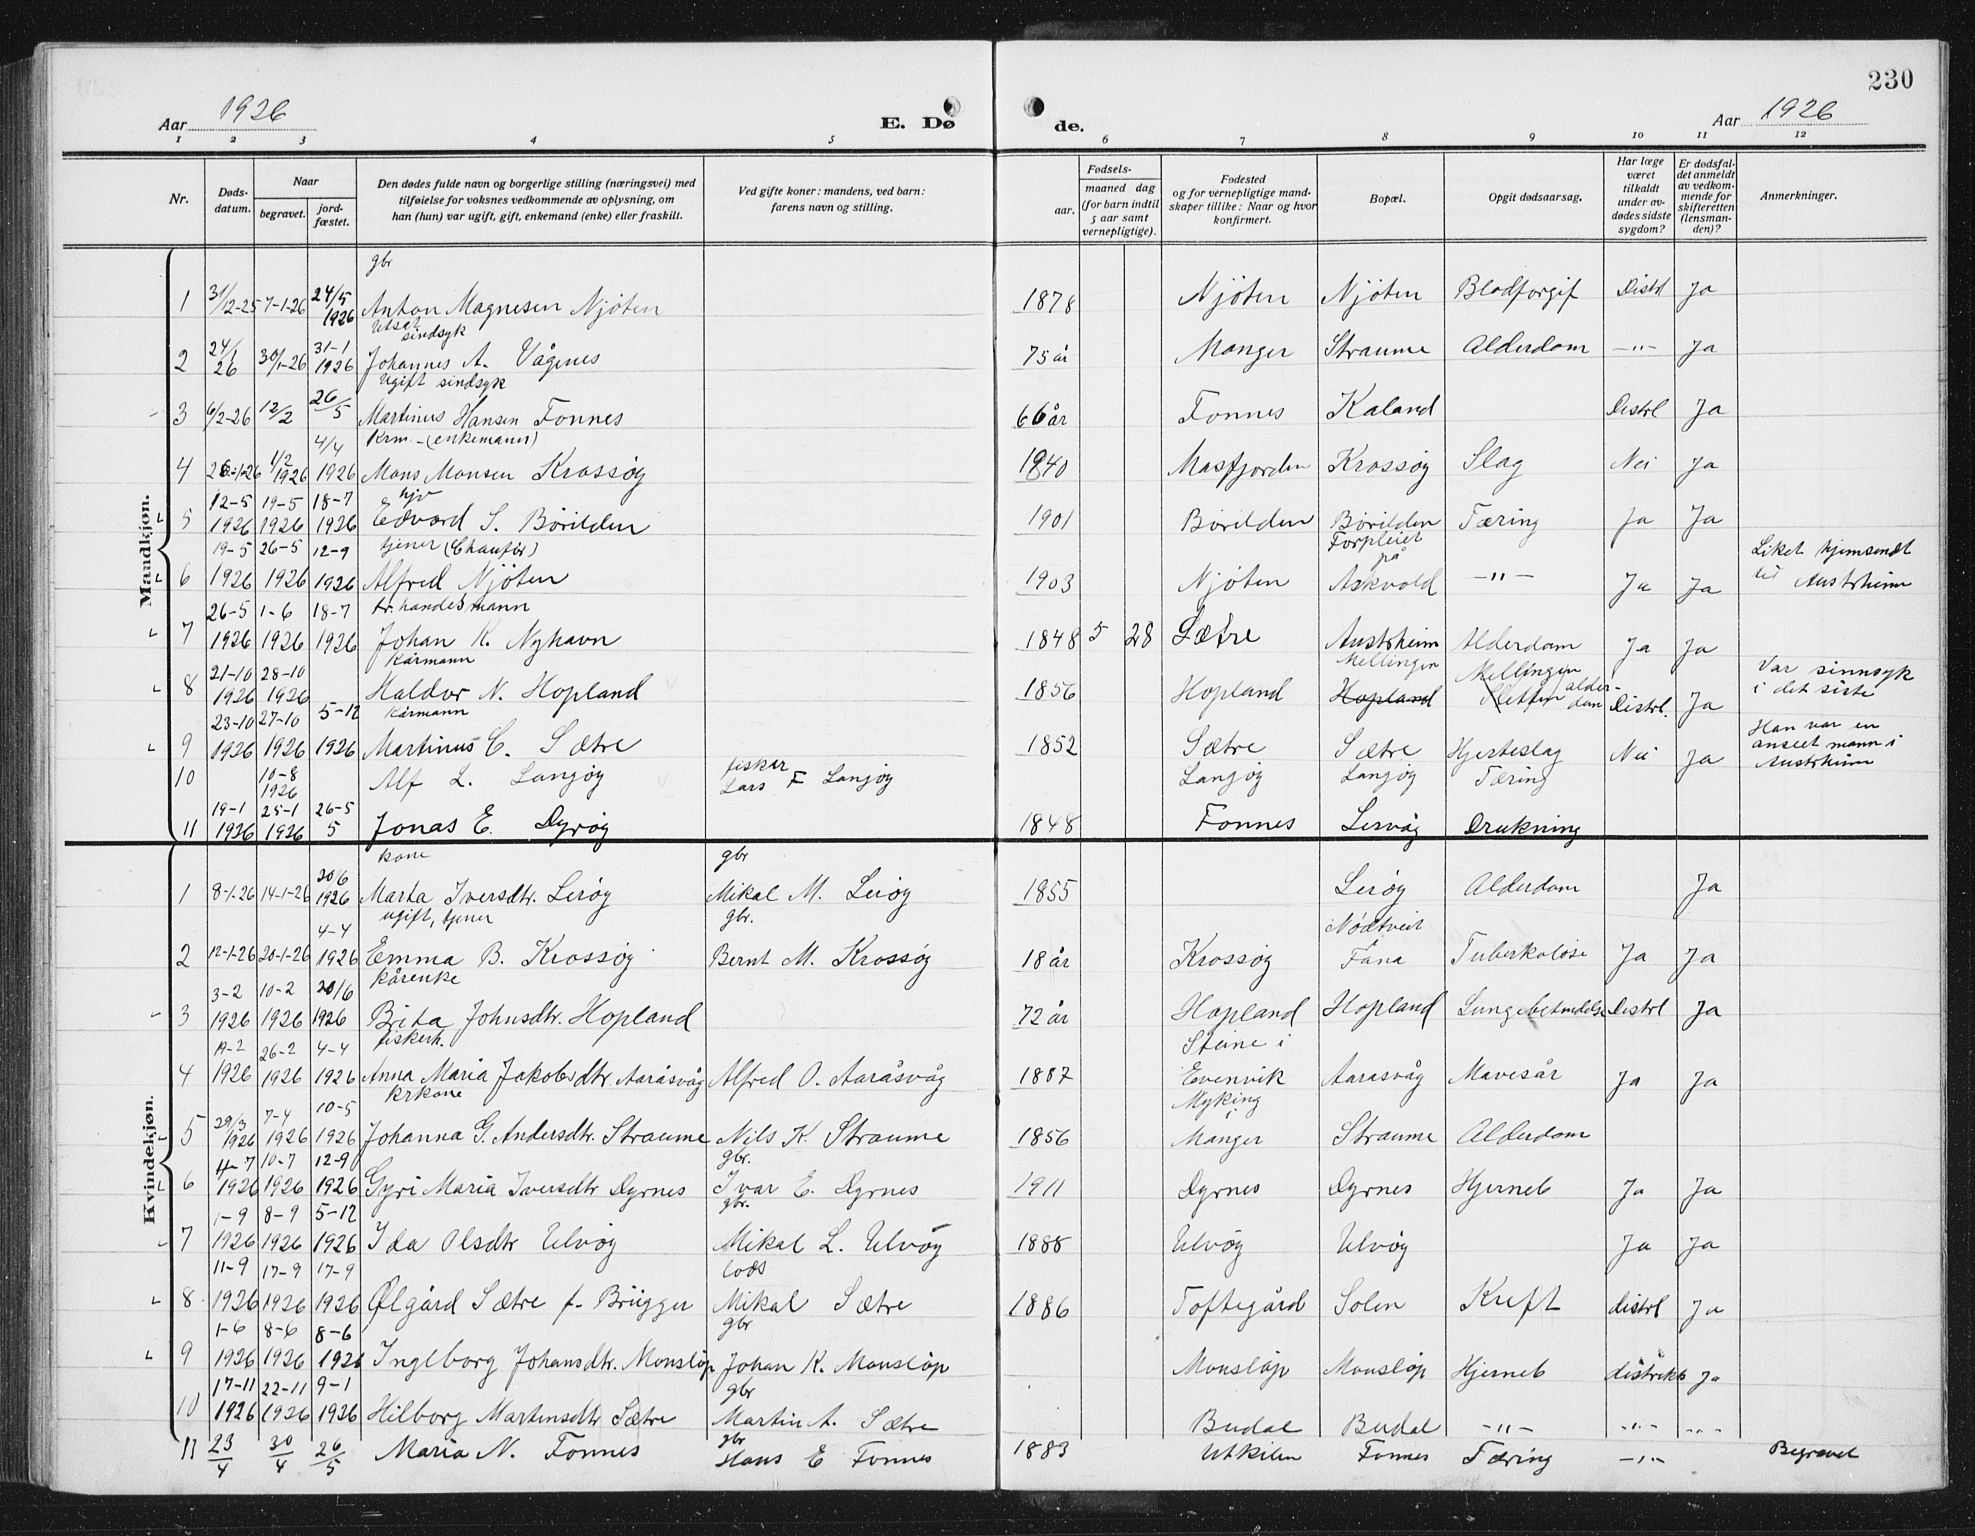 230
Aar 1926 E. Dø de. Aar 1926
1 2 3 4 5 6 7 8 9 10 11 12
Nr. Døds-datum. Naar begravet. jord-fæstet. Den dødes fulde navn og borgerlige stilling (næringsvei) med tilføielse for voksnes vedkommende av oplysning, om han (hun) var ugift, gift, enkemand (enke) eller fraskilt. Ved gifte koner: mandens, ved barn: farens navn og stilling. Fødsels- aar. maaned dag (for barn indtil 5 aar samt vernepligtige). Fødested og for vernepligtige mand-skaper tillike: Naar og hvor konfirmert. Bopæl. Opgit dødsaarsag. Har læge været tilkaldt under av-dødes sidste sygdom? Er dødsfal-det anmeldt av vedkom-mende for skifteretten (lensman-den)? Anmerkninger.
Mandkjøn.
gbr
1 31/12-25 7-1-26 24/5 1926 Anton Magnesen Njøten 1878 Njöten Njöten Blodforgif Distrl Ja
sindsyk
2 24/1 26 30/1-26 31-1 1926 Johannes A. Vågenes 75 år Manger Straume Alderdom -"- Ja
Ugift sindsyk
3 6/2-26 12/2 26/5 Martinus Hansen Fonnes 66 år Fonnes Kaland Distrl Ja
Krm. - (enkemann)
4 26-1-26 1/2 1926 4/4 1926 Mons Monsen Krossøy 1840 Masfjorden Krossøy Slag Nei Ja
5 12-5 1926 19-5 1926 18-7 1926 Edvard S. Börilden 1901 Börilden Börilden Tæring Ja Ja
tjener (Chaufør)
6 19-5 1926 26-5 1926 12-9 1926 Alfred Njöten 1903 Njöten Forpleiet på Askvold -"- Ja Ja Liket hjemsendt til Austrheim
handelsmann
7 26-5 1926 1-6 1926 18-7 1926 Johan K. Nyhavn 1848 5 28 Sætre Austrheim Alderdom Ja Ja
Kårmann
8 21-10 1926 28-10 1926 Haldor N. Hopland 1856 Hopland Mellingen Hopland Mellingen Sletten alder-dom Distrl. Ja Var sinnsyk i det siste
Kårmann
9 23-10 1926 27-10 1926 5-12 1926 Martinus C. Sætre 1852 Sætre Sætre Hjerteslag Nei Ja Han var en anseet mann i Austrheim
10 10-8 1926 Alf L. Langøy fisker Lars F Langøy Langøy Langøy Tæring
11 19-1 1926 25-1 1926 26-5 5 Jonas E. Dyrøy 1848 Fonnes Lervåg Drukning
Kvindekjøn.
kone gbr
1 8-1-26 14-1-26 20/6 1926 Marta Iversdtr. Lerøy Mikal M. Lerøy 1855 Lerøy Alderdom Ja
ugift, tjener gbr.
2 12-1-26 20-1-26 4-4 1926 Emma B. Krossøy Bernt M. Krossøy 18 år Krossøy Nödtveit Fana Tuberkolose Ja Ja
Kårenke
3 3-2 1926 10-2 1926 20/6 1926 Brita Johnsdtr. Hopland 72 år Hopland Hopland Lungebetendelse Distrl Ja
fiskerk.
4 19-2 1926 26-2 1926 4-4 1926 Anna Maria Jakobsdtr. Aaråsvåg Alfred O. Aaråsvåg 1887 Steine i Evenvik Aarasvåg Mavesår Ja Ja
krkone
5 29/3 1926 7-4 1926 10-5 1926 Johanna G. Andersdtr. Straume Nils K. Straume 1856 Myking i Manger Straume Alderdom
gbr.
6 4-7 1926 10-7 1926 12-9 1926 Gyri Maria Iversdtr Dyrnes Ivar E. Dyrnes 1911 Dyrnes Dyrnes Hjerneb Ja Ja
gbr.
7 1-9 1926 8-9 1926 5-12 1926 Ida Olsdtr Ulvøy Mikal L. Ulvøy 1888 Ulvøy Ulvøy Ja Ja
lods
8 11-9 1926 17-9 1926 17-9 1926 Ølgård Sætre f. Brügger Mikal Sætre 1886 Toftegård Solen Kreft distrl Ja
gbr
9 1-6 1926 8-6 1926 8-6 1926 Ingeborg Johansdtr. Monsløp Johan K. Monsløp Monsløp Monsløp Hjerneb distrikts Ja
gbr
10 17-11 1926 22-11 1926 9-1 1926 Hilborg Martinsdtr Sætre Martin A. Sætre Budal Budal -"- -"- -"-
gbr
11 23/4 30/4 26/5 Maria N. Fonnes Hans E Fonnes 1883 Utkilen Fonnes Tæring -"- Begravet